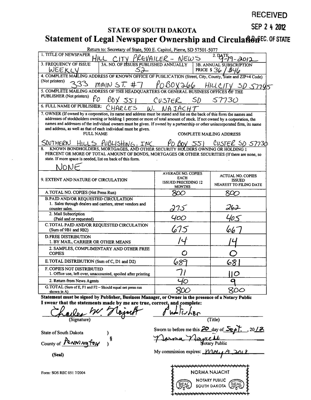 RECEIVED
SEP 24 2012
STATE OF SOUTH DAKOTA
Statement of Legal Newspaper Ownership and Circulation SEC. OF STATE
Return to: Secretary of State, 500 E. Capitol, Pierre, SD 57501-5077
1. TITLE OF NEWSPAPER HILL CITY PREVAILER - NEWS
2. DATE 9-19-2012
3. FREQUENCY OF ISSUE WEEKLY
3A. NO. OF ISSUES PUBLISHED ANNUALLY 52
3B. ANNUAL SUBSCRIPTION PRICE $ 36 / $46
4. COMPLETE MAILING ADDRESS OF KNOWN OFFICE OF PUBLICATION (Street, City, County, State and ZIP+4 Code)
(Not printers) 333 MAIN ST #7 PO BOX 266 HILL CITY SD 57745
5. COMPLETE MAILING ADDRESS OF THE HEADQUARTERS OF GENERAL BUSINESS OFFICES OF THE
PUBLISHER (Not printers) PO BOX 551 CUSTER SD 57730
6. FULL NAME OF PUBLISHER: CHARLES W. NAJACHT
7. OWNER (If owned by a corporation, its name and address must be stated and list on the back of this form the names and
addresses of stockholders owning or holding 1 percent or more of total amount of stock. If not owned by a corporation, the
names and addresses of the individual owners must be given. If owned by a partnership or other unincorporated firm, its name
and address, as well as that of each individual must be given.
FULL NAME COMPLETE MAILING ADDRESS
SOUTHERN HILLS PUBLISHING, INC. PO BOX 551 CUSTER SD 57730
8. KNOWN BONDHOLDERS, MORTGAGEES, AND OTHER SECURITY HOLDERS OWNING OR HOLDING 1
PERCENT OR MORE OF TOTAL AMOUNT OF BONDS, MORTGAGES, OR OTHER SECURITIES (If there are none, so
state. If more space is needed, list on back of this form.
NONE
9. EXTENT AND NATURE OF CIRCULATION
AVERAGE NO. COPIES EACH ISSUED PRECEDING 12 MONTHS
ACTUAL NO. COPIES ISSUED NEAREST TO FILING DATE
A. TOTAL NO. COPIES (Net Press Run) 800 800
B. PAID AND/OR REQUESTED CIRCULATION
1. Sales through dealers and carriers, street vendors and counter sales. 275 262
2. Mail Subscription (Paid and or requested) 400 405
C. TOTAL PAID AND/OR REQUESTED CIRCULATION (Sum of 9B1 and 9B2) 675 667
D. FREE DISTRIBUTION
1. BY MAIL, CARRIER OR OTHER MEANS 14 14
2. SAMPLES, COMPLIMENTARY AND OTHER FREE COPIES 0 0
E. TOTAL DISTRIBUTION (Sum of C, D1 and D2) 689 681
F. COPIES NOT DISTRIBUTED
1. Office use, left over, unaccounted, spoiled after printing 71 110
2. Return from News Agents 40 9
G. TOTAL (Sum of E, F1 and F2 - Should equal net press run shown in A) 800 800
Statement must be signed by Publisher, Business Manager, or Owner in the presence of a Notary Public
I swear that the statements made by me are true, correct, and complete:
Charles W. Najacht Publisher
(Signature) (Title)
State of South Dakota )
Sworn to before me this 20 day of Sept, 2012
County of Pennington )
Norma Najacht
Notary Public
(Seal)
My commission expires:
Form: SOS REC 051 7/2004
NORMA NAJACHT
NOTARY PUBLIC
SOUTH DAKOTA
SEAL
SEAL